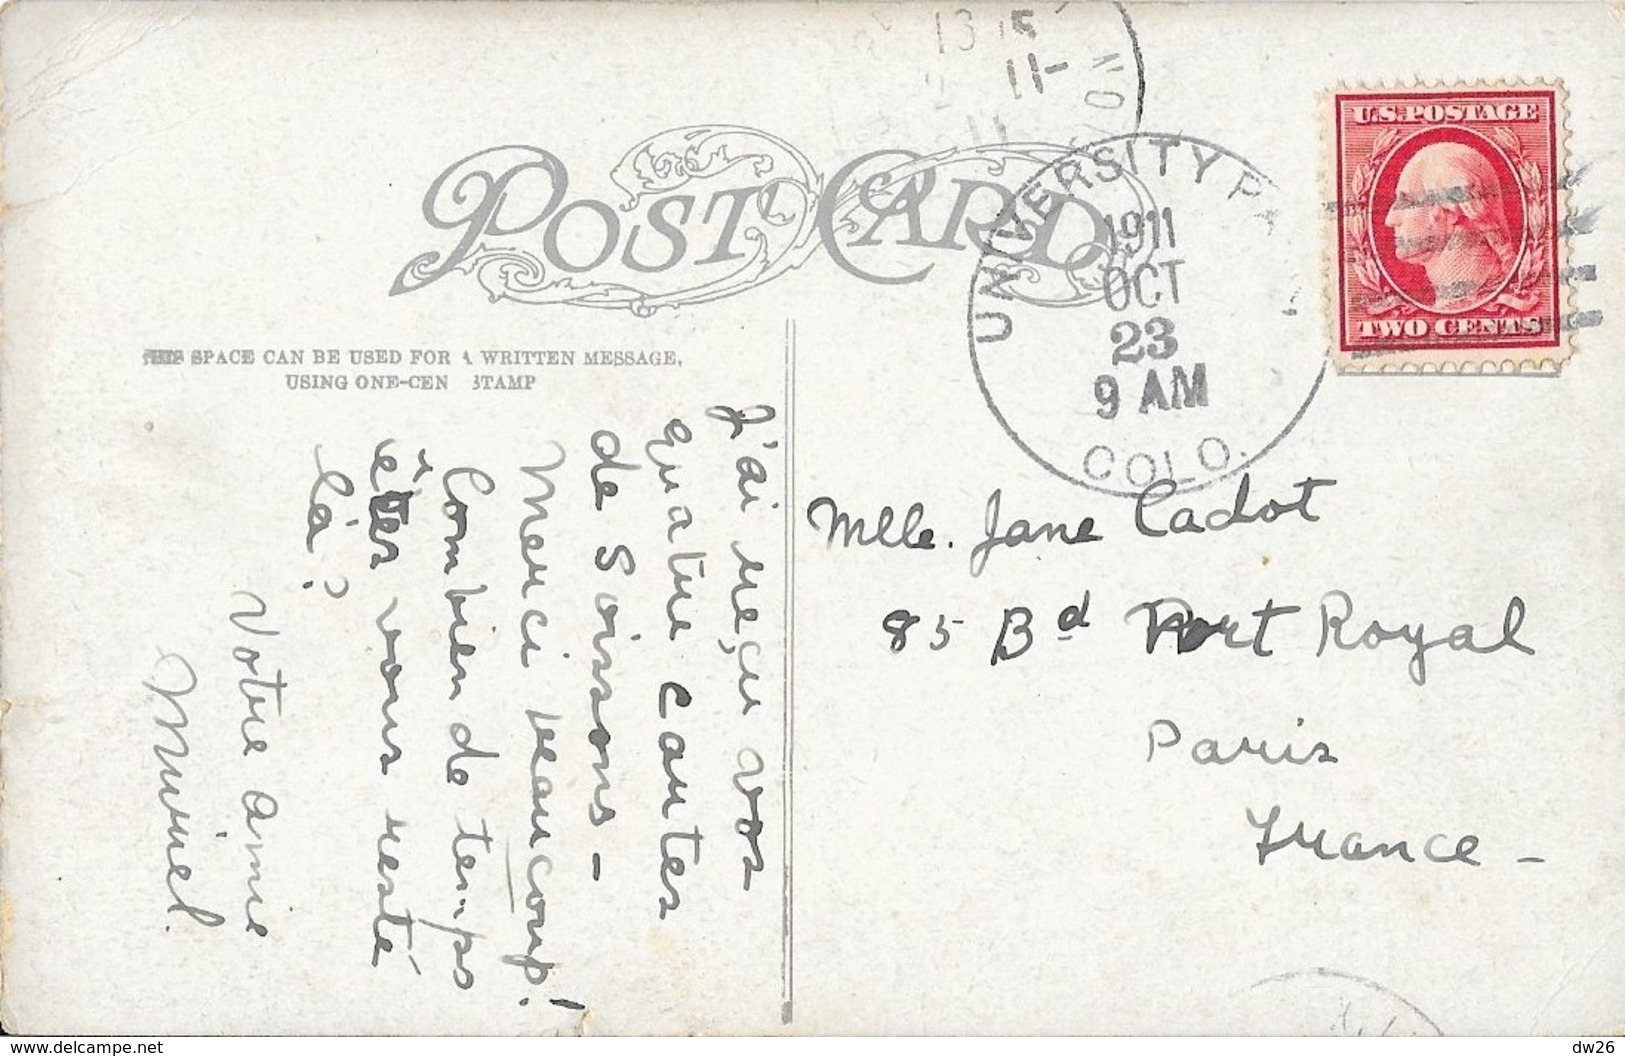 POST CARD
SPACE CAN BE USED FOR A WRITTEN MESSAGE,
USING ONE-CEN STAMP
J'ai reçu vos
quatre cartes
de Soissons -
Merci beaucoup!
Combien de temps
êtes vous resté
là?
Votre amie
Muriel.
13 15
11-
UNIVERSITY P
1911
OCT
23
9 AM
COLO.
U.S. POSTAGE
TWO CENTS
Mlle. Jane Cadot
85 Bd Port Royal
Paris
France -
delcampe.net
dw26